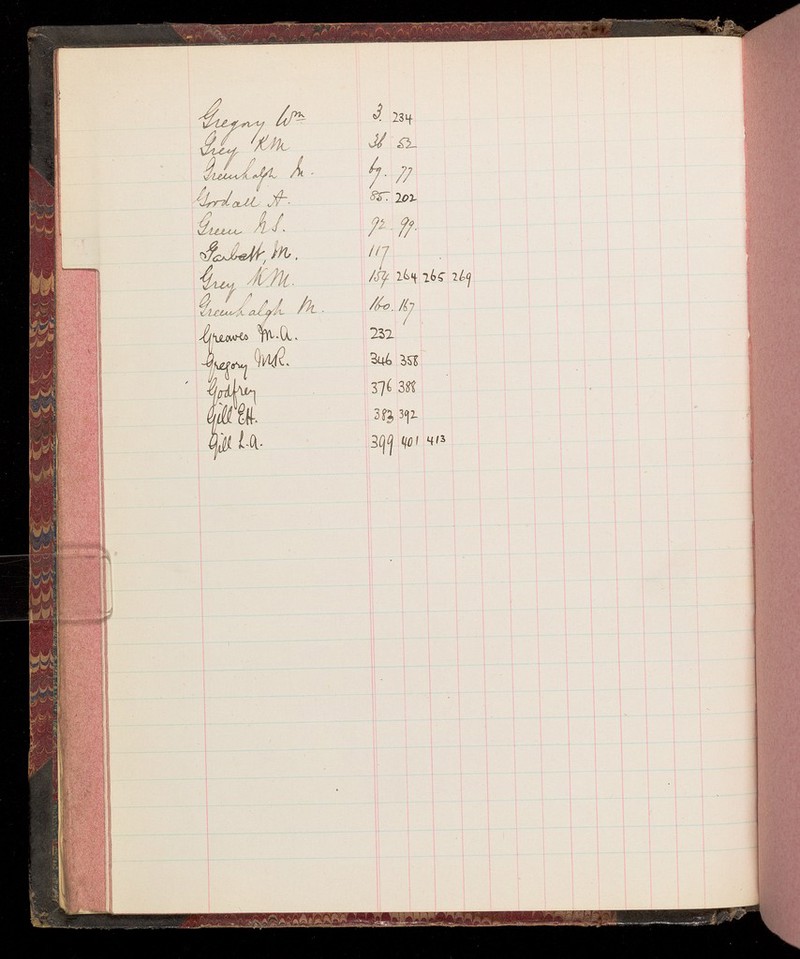 Gregory Wm 3. 234
Grey KM 36 52
Greenhalgh M. 69. 77
Goodall A. 85. 202
Green N.S. 92 99.
Garbett, M. 117
Grey KM. 154 264 265 269
Greenhalgh M. 160. 167
Greaves M.A. 232
Gregory MR. 346 358
Godfrey 376 388
Gill EH. 383 392
Gill L.A. 399 401 413